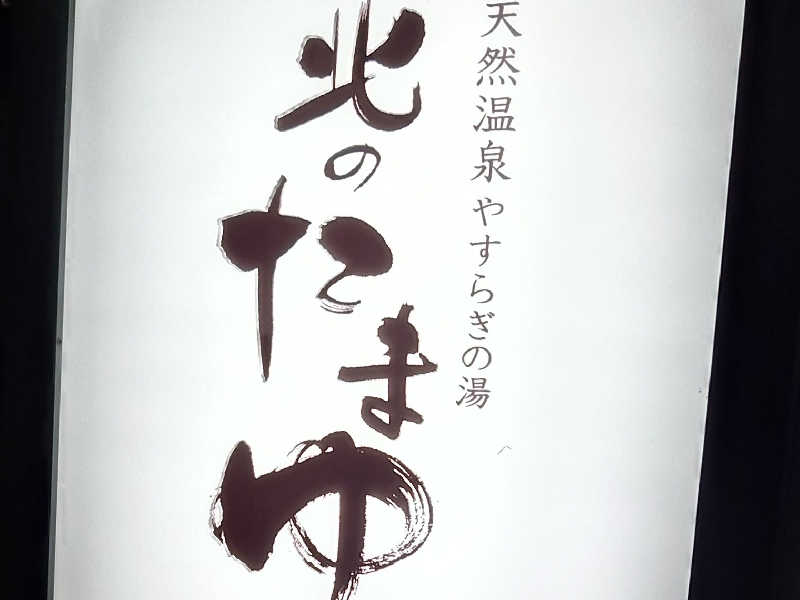 天然温泉 やすらぎの湯
北のたまゆ